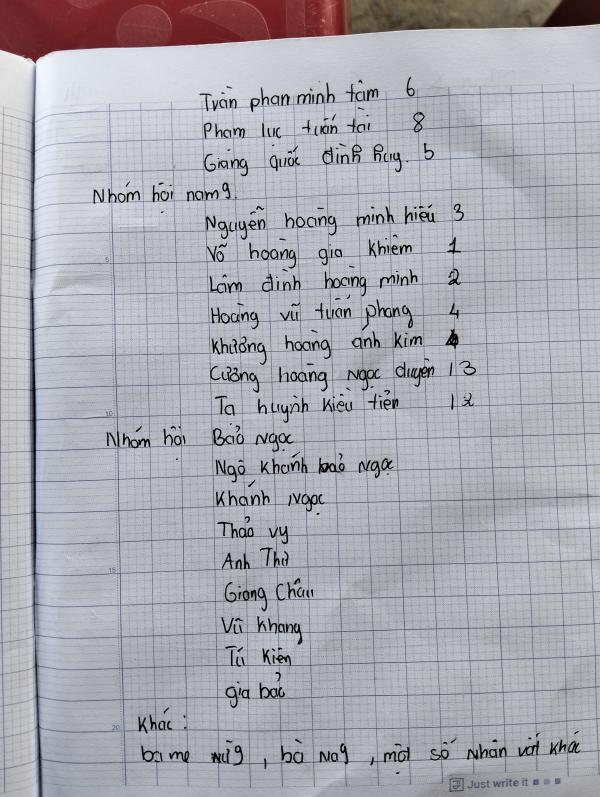 Trần phan minh tâm 6
Phạm lục tuấn tài 8
Giàng quốc đình huy. 5
Nhóm hội nam 9.
Nguyễn hoàng minh hiếu 3
Võ hoàng gia khiêm 1
Lâm đình hoàng minh 2
Hoàng vũ tuấn phong 4
Khương hoàng anh kim
Cường hoàng ngọc duyên 13
Tạ huỳnh kiều tiên 12
Nhóm hội Bảo Ngọc
Ngô Khánh bảo Ngọc
Khánh Ngọc
Thảo vy
Anh Thư
Giang Châu
Vũ Khang
Tú Kiên
gia bảo
Khác:
ba mẹ, bà, một số Nhân vật khác
5
10
15
20
Just write it